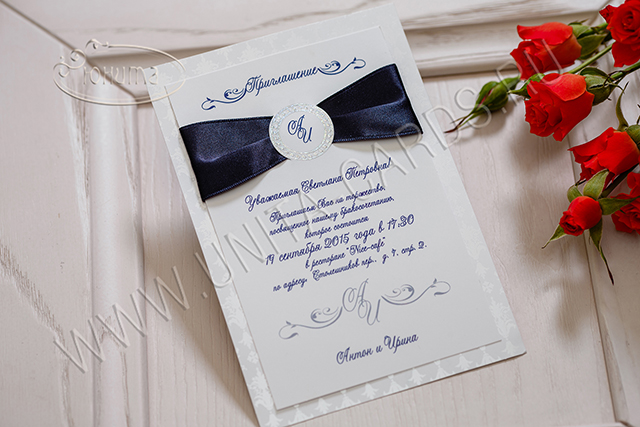 Приглашение
АИ
Уважаемая Светлана Петровна!
Приглашаем Вас на торжество,
посвященное нашему бракосочетанию,
которое состоится
19 сентября 2015 года в 17:30
в ресторане "Nice-cafe"
по адресу: Столешников пер., д. 7, стр. 2.
АИ
Антон и Ирина
WWW.UNITA-CARDS.RU